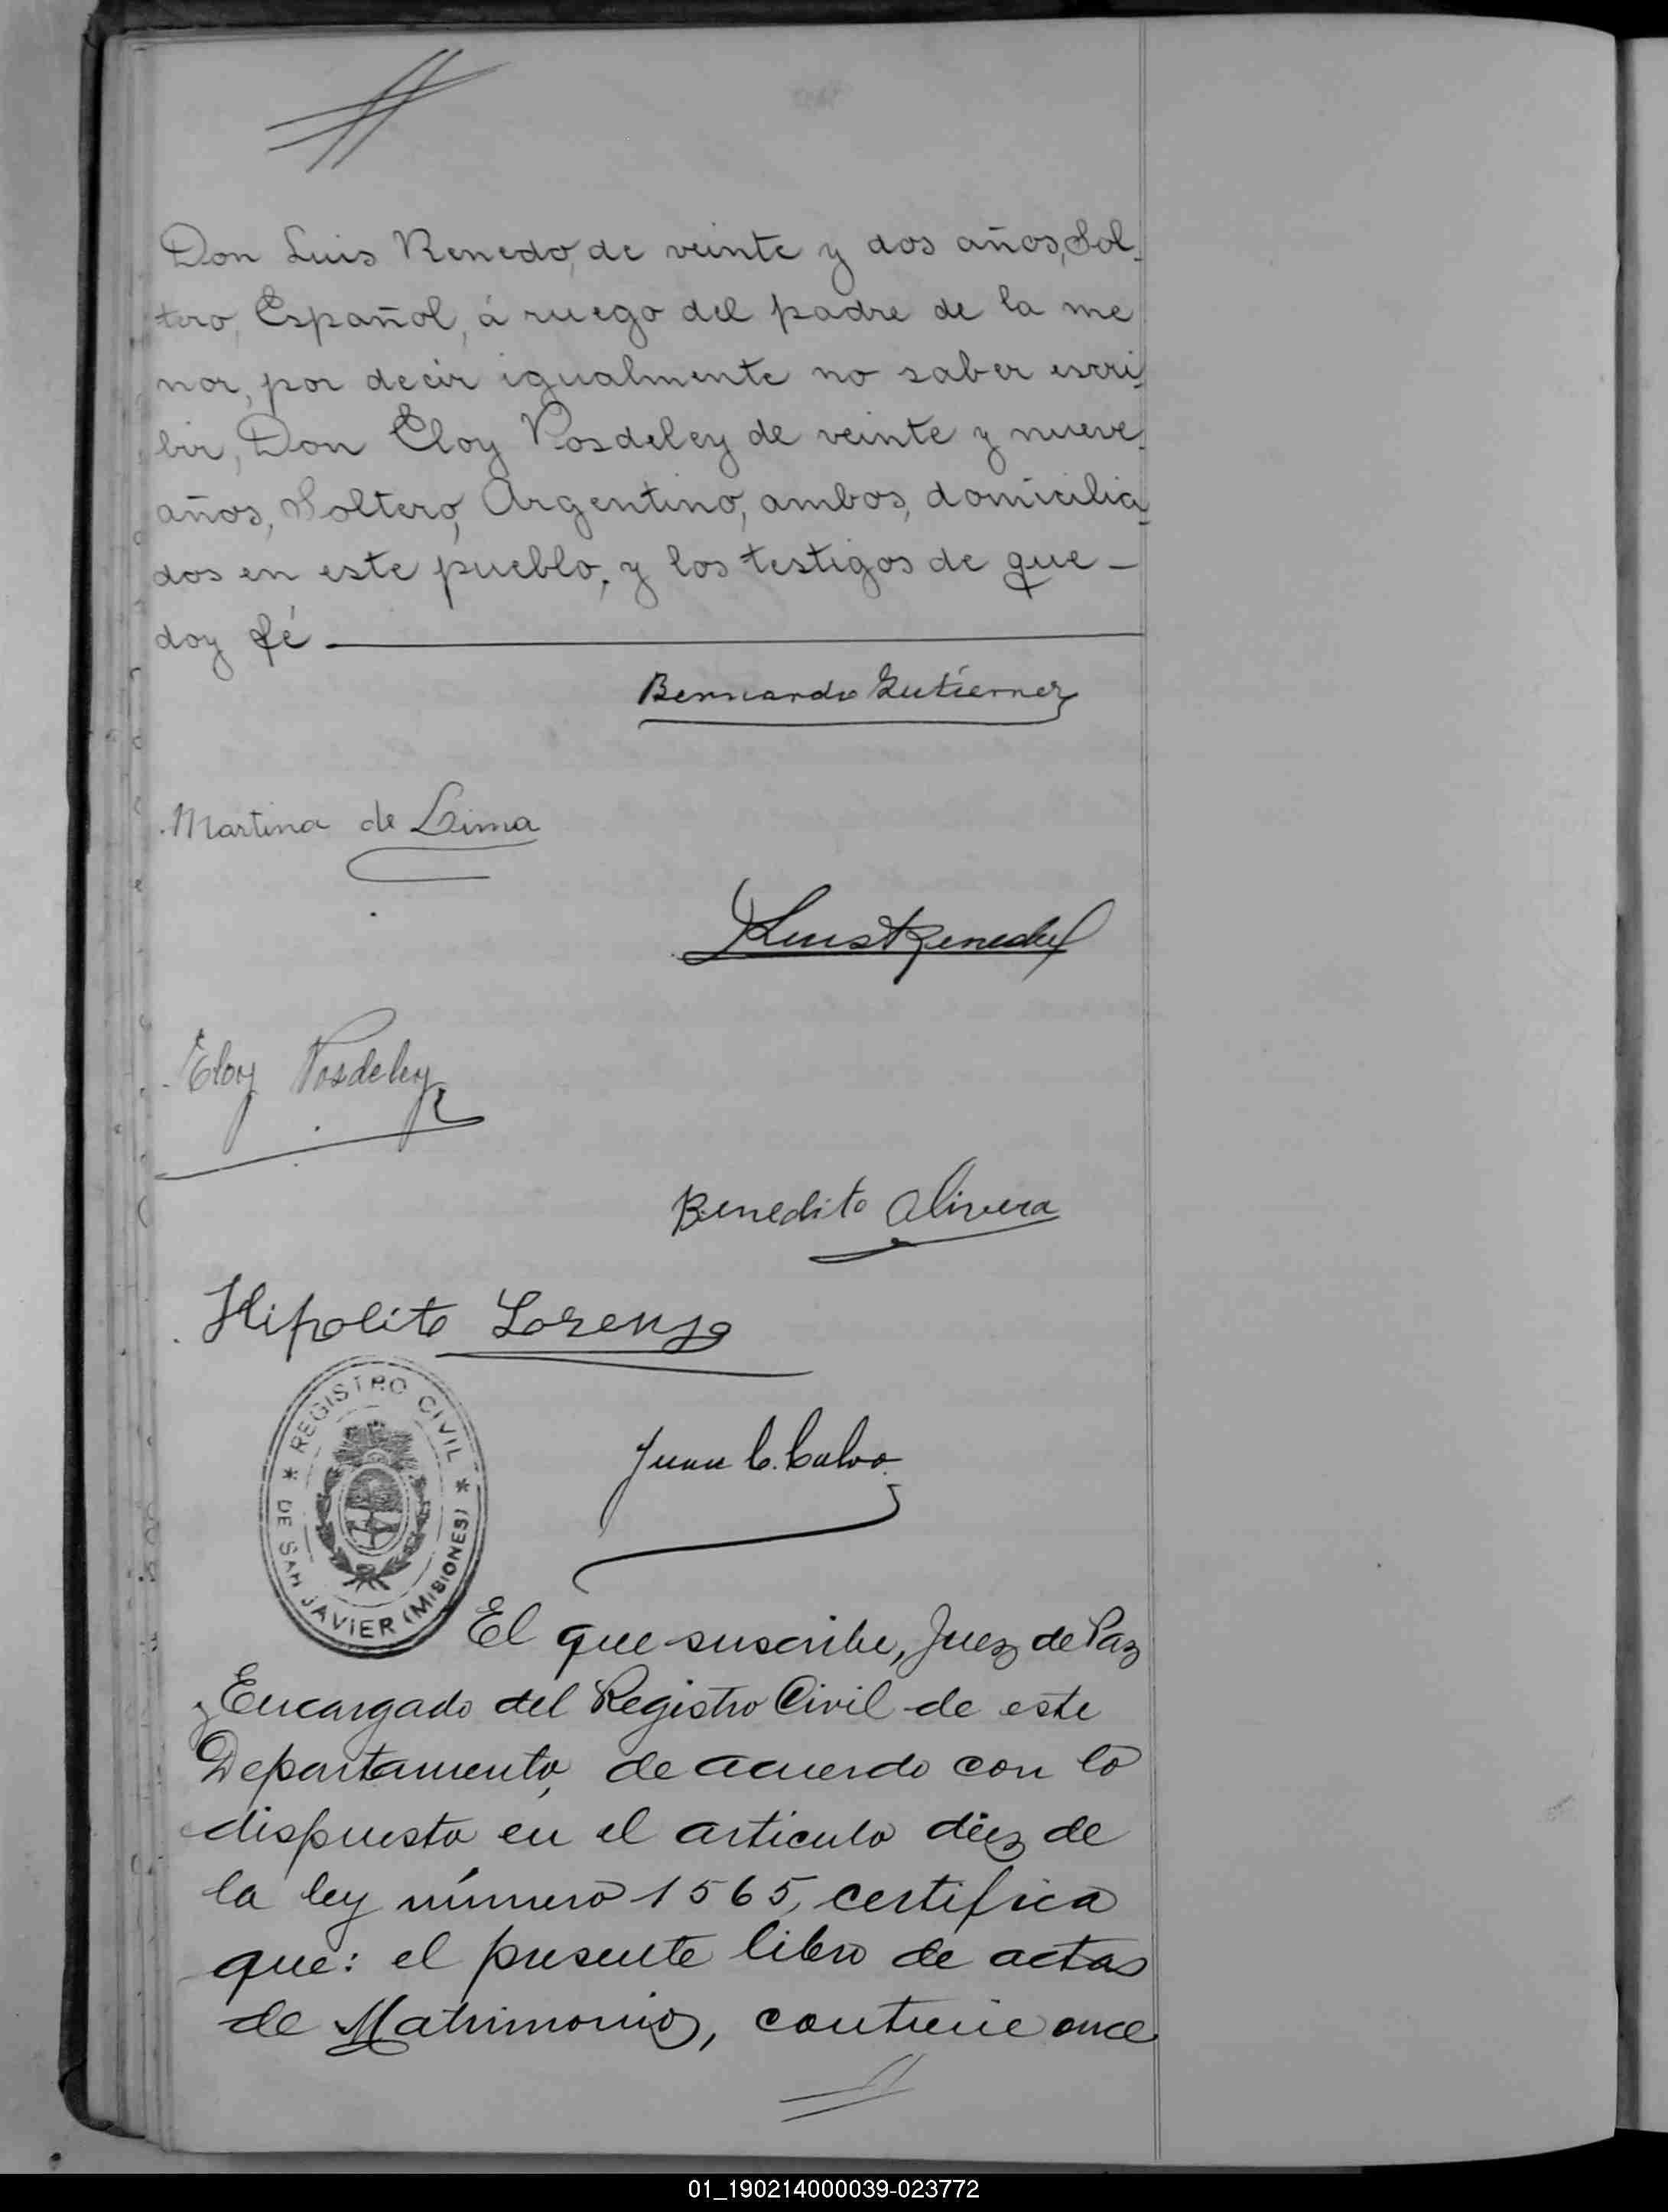 Don Luis Renedo, de veinte y dos años, Sol-
tero, Español, á ruego del padre de la me
nor, por decir igualmente no saber escri-
bir, Don Eloy Posdeley de veinte y nueve
años, Soltero, Argentino, ambos, domicilia-
dos en este pueblo, y los testigos de que -
doy fé
Bernardo Gutierrez
Martina de Lima
Luis Renedo
Eloy Posdeley
Benedito Olivera
Hipolito Lorenzo
REGISTRO CIVIL
DE SAN JAVIER (MISIONES)
Juan C. Calvo.
El que suscribe, Juez de Paz
y Encargado del Registro Civil de este
Departamento, de acuerdo con lo
dispuesto en el articulo diez de
la ley número 1565, certifica
que: el presente libro de actas
de Matrimonios, contiene once
01_190214000039-023772